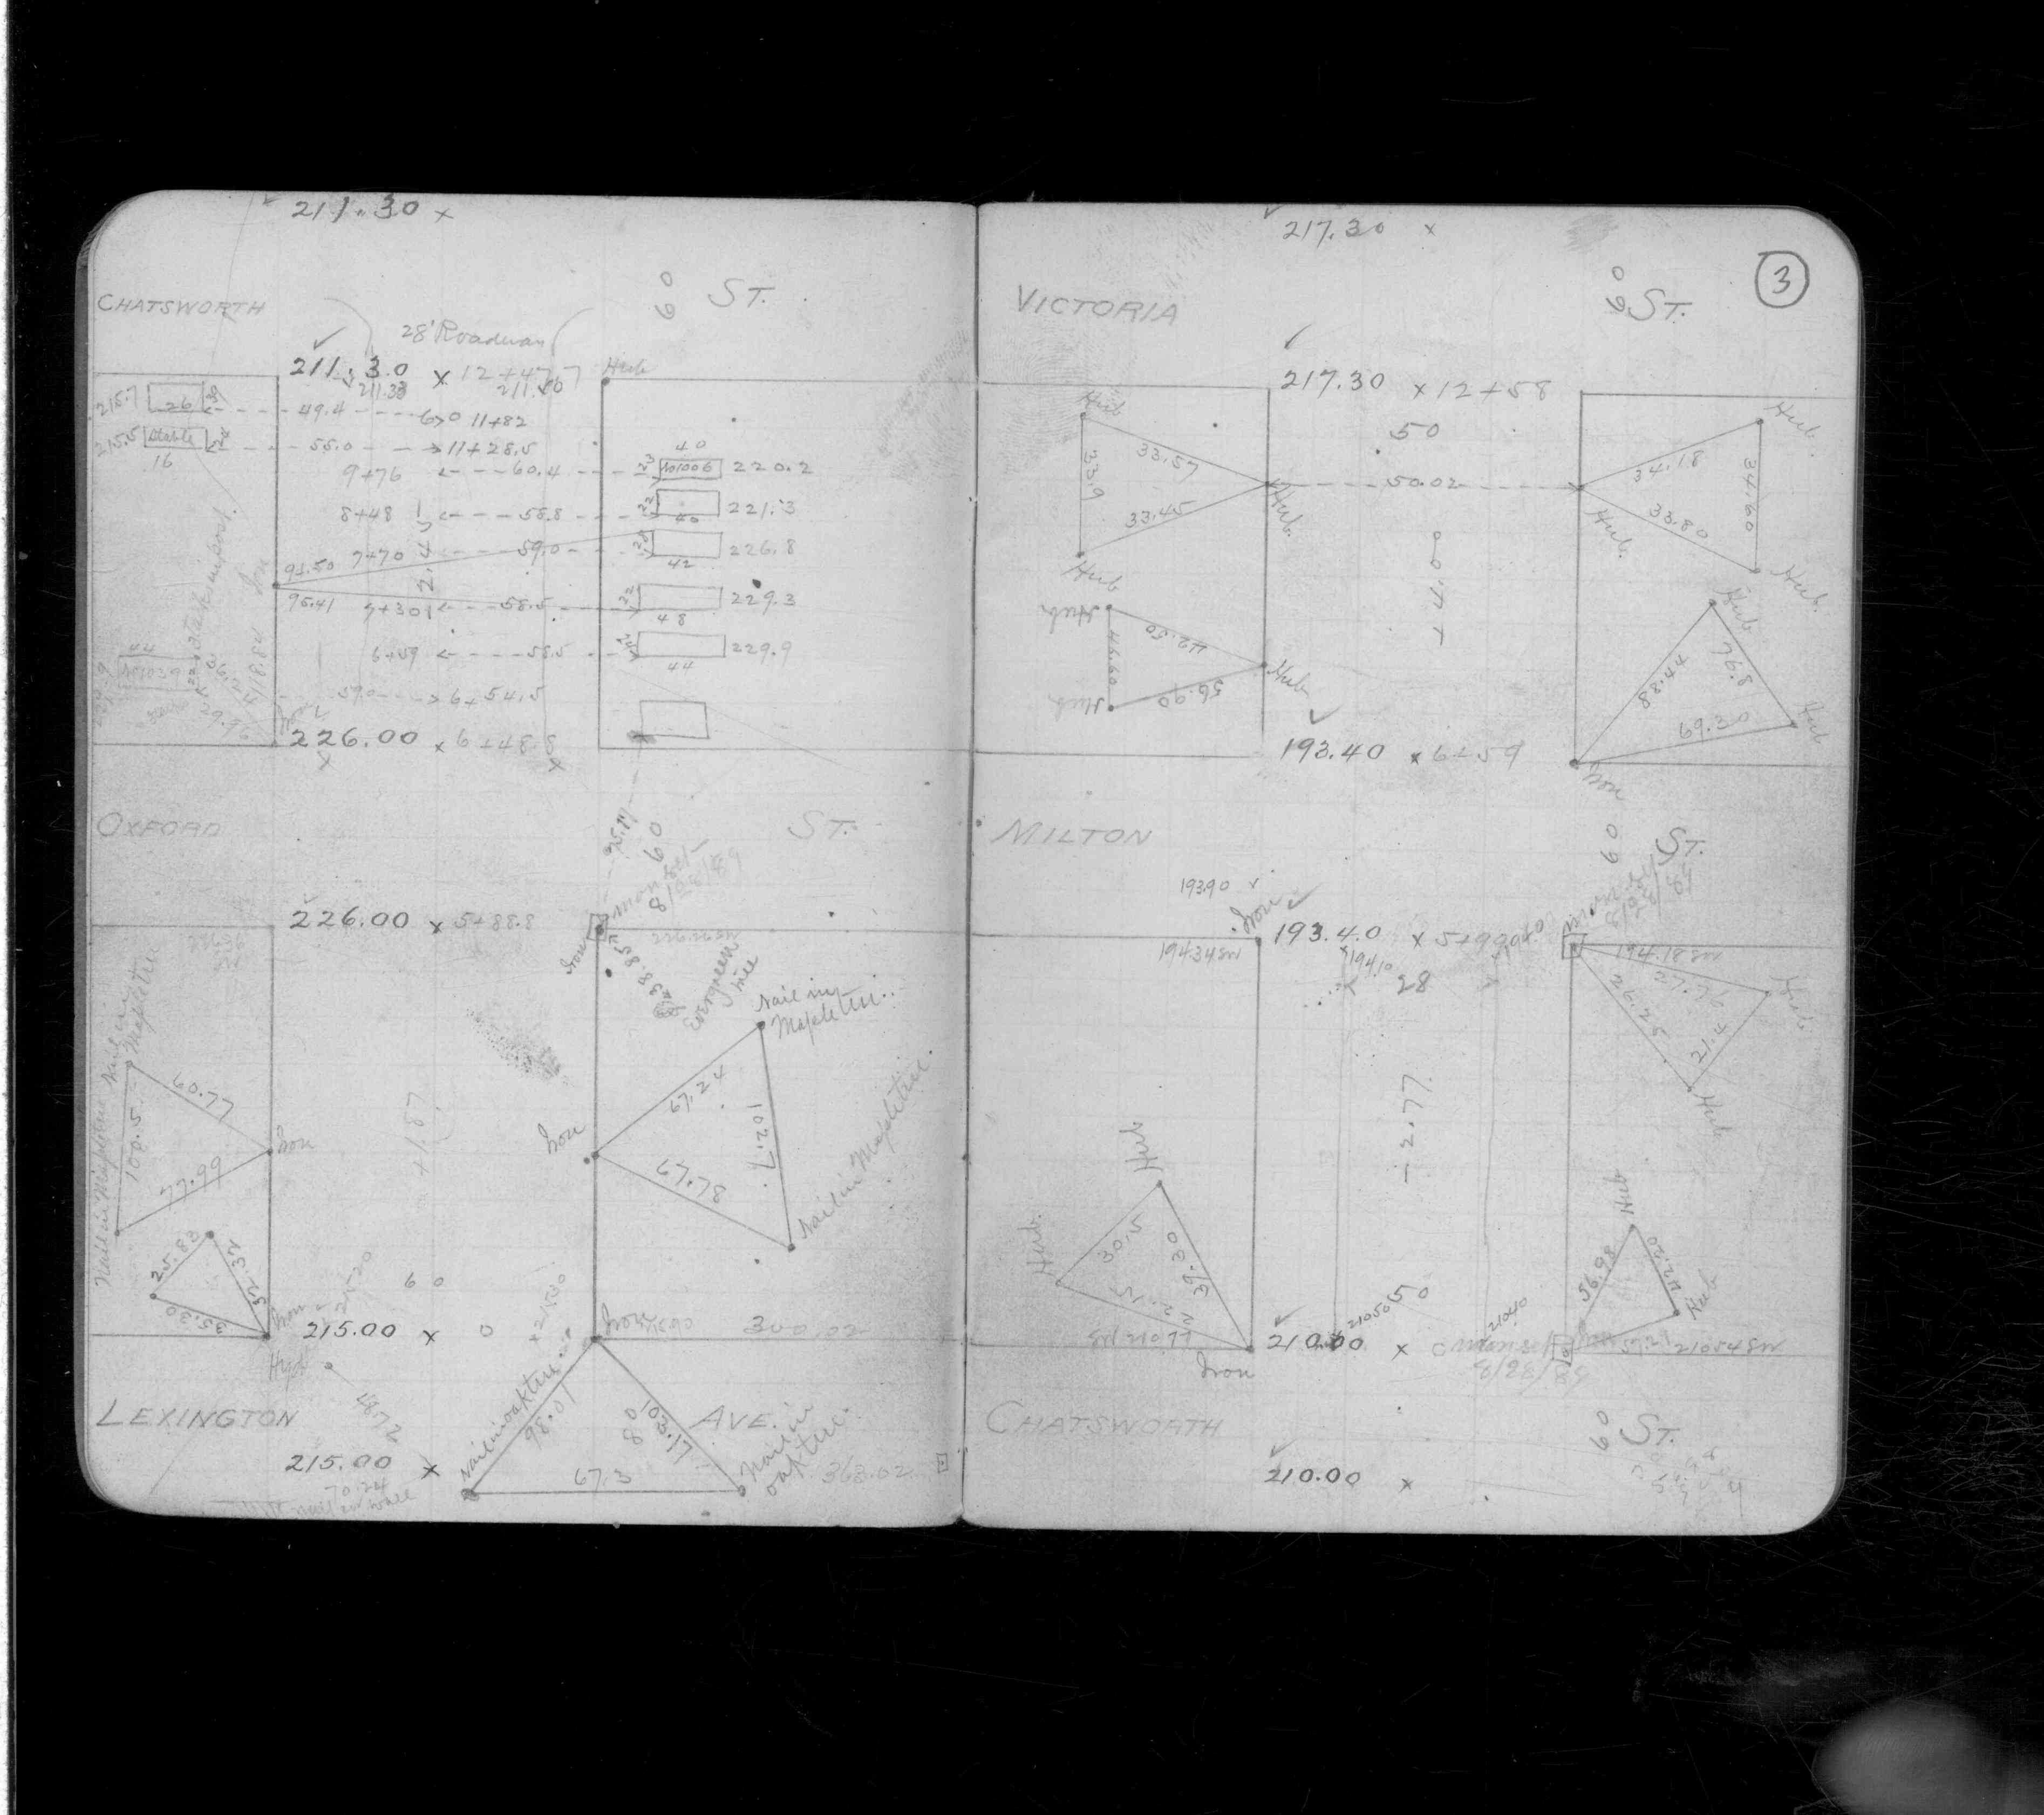 211.30 x
ST.
60
CHATSWORTH
28' Roadway
211.30 x 12+47.7
Hub
215.7 26
49.4 60 11+82
215.5 Stable 55.0 11+28.5
16
40
9+76 60.4 23 No1006 220.2
8+48 58.8 22 221.3
40
7+70 59.0 226.8
42
91.50
95.41
7+30 58.5 22 229.3
48
6+59 58.5 229.9
44
-2.45
44
No1039
57.0 6+54.5
Iron
226.00 x 6+48.8
x x
OXFORD ST.
60
25.17
Mon set
8/28/89
226.00 x 5+88.8
Iron
38.85
Evergreen tree
Nail in Maple tree
Nail in Maple tree
60.77
100.5
77.99
Iron
Nail in Maple tree
67.24
102.7
67.78
Iron
Nail in Maple tree
+1.87
25.83
32.37
35.30
60
Iron
215.00 x 0
x 215.00
Iron
300.02
Hyd
48.72
LEXINGTON AVE.
80
Nail in oak tree
98.01
103.17
67.3
Nail in oak tree
368.02
215.00 x
70.24
nail in wall
217.30 x
3
VICTORIA ST.
60
217.30 x 12+58
50
Hub
33.57
33.9
33.45
Hub
Hub
50.02
Hub
34.18
34.60
33.80
Hub
Hub
Hub
42.50
44.60
56.90
Hub
Hub
+4.00
Hub
88.44
76.8
69.30
Hub
Iron
193.40 x 6+59
MILTON ST.
60
193.90
Iron
Mon set
8/28/89
193.40 x 5+99
194.34 SW
194.10
28
194.18 SW
27.76
26.25
21.4
Hub
Hub
-2.77
Hub
30.5
39.30
Hub
Iron
SW 210.77
50
210.50
210.40
Hub
56.98
42.20
Hub
57.21
210.54 SW
210.00 x 0
Mon set
8/28/89
CHATSWORTH ST.
60
210.00 x